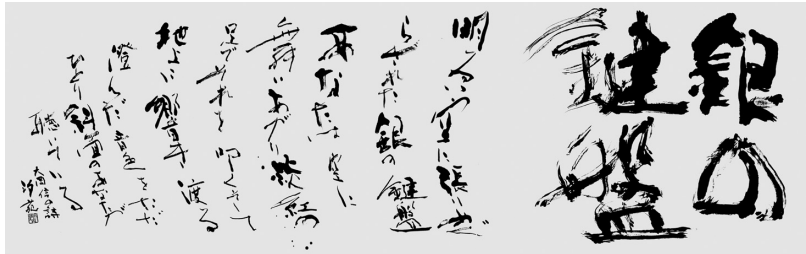 銀の
鍵盤
明るい空に張りめぐ
らされた銀の鍵盤
あなたは空に
舞いあがり 紅の
足でそれを叩くそして
地上に響き渡る
澄んだ音色をただ
ひとり斜面の
聴いている
大岡信の詩